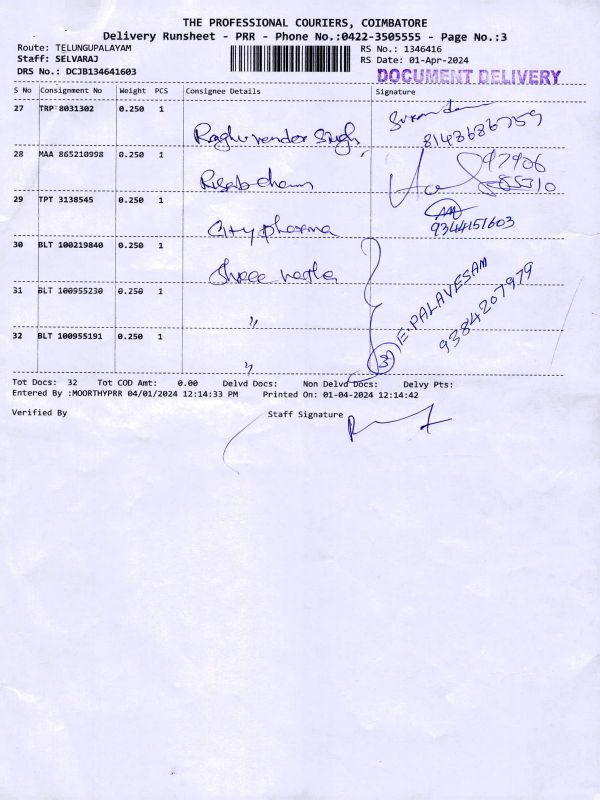 THE PROFESSIONAL COURIERS, COIMBATORE
Delivery Runsheet - PRR - Phone No.:0422-3505555 - Page No.:3
Route: TELUNGUPALAYAM RS No.: 1346416
Staff: SELVARAJ RS Date: 01-Apr-2024
DRS No.: DCJB134641603 DOCUMENT DELIVERY
S No Consignment No Weight PCS Consignee Details Signature
27 TRP 8031302 0.250 1
Raghuvender Singh 8148686759
28 MAA 865210998 0.250 1
29 TPT 3138545 0.250 1
City pharma 9344151603
30 BLT 100219840 0.250 1
Shree
31 BLT 100955230 0.250 1
" E. PALAVESAM
9384207979
32 BLT 100955191 0.250 1
" 3
Tot Docs: 32 Tot COD Amt: 0.00 Delvd Docs: Non Delvd Docs: Delvy Pts:
Entered By :MOORTHYPRR 04/01/2024 12:14:33 PM Printed On: 01-04-2024 12:14:42
Verified By Staff Signature